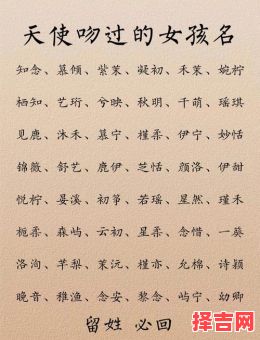 天使吻过的女孩名
知念、慕倾、紫茉、凝初、禾茉、婉柠
栖知、艺珩、兮映、秋明、千萌、瑶琪
见鹿、沐禾、慕宁、槿柔、伊宁、妙恬
锦薇、舒艺、鹿伊、芝恬、颜洛、伊甜
悦柠、晏溪、初筝、若瑶、星然、瑾禾
栀柔、森屿、云初、星柔、念惜、一葵
洛洵、芊梨、茉沅、槿亦、允棉、诗颖
晚音、稚渔、念安、黎念、屿宁、幼卿
留姓 必回
择吉网